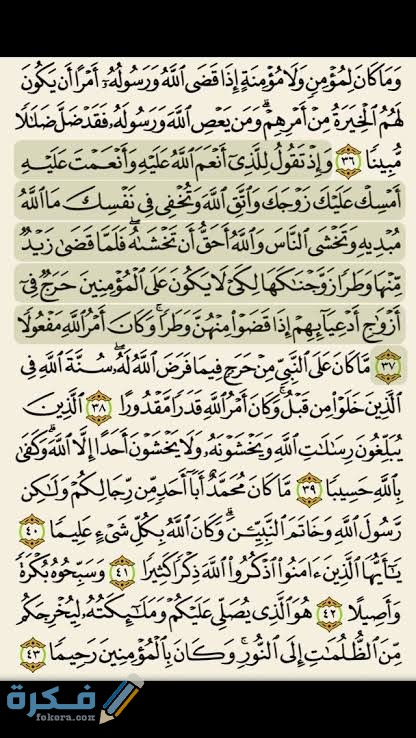 وَمَا كَانَ لِمُؤْمِنٍ وَلَا مُؤْمِنَةٍ إِذَا قَضَى ٱللَّهُ وَرَسُولُهُۥٓ أَمْرًا أَن يَكُونَ
لَهُمُ ٱلْخِيَرَةُ مِنْ أَمْرِهِمْ ۗ وَمَن يَعْصِ ٱللَّهَ وَرَسُولَهُۥ فَقَدْ ضَلَّ ضَلَٰلًا
مُّبِينًا ٣٦ وَإِذْ تَقُولُ لِلَّذِىٓ أَنْعَمَ ٱللَّهُ عَلَيْهِ وَأَنْعَمْتَ عَلَيْهِ
أَمْسِكْ عَلَيْكَ زَوْجَكَ وَٱتَّقِ ٱللَّهَ وَتُخْفِى فِى نَفْسِكَ مَا ٱللَّهُ
مُبْدِيهِ وَتَخْشَى ٱلنَّاسَ وَٱللَّهُ أَحَقُّ أَن تَخْشَىٰهُ ۖ فَلَمَّا قَضَىٰ زَيْدٌ
مِّنْهَا وَطَرًا زَوَّجْنَٰكَهَا لِكَىْ لَا يَكُونَ عَلَى ٱلْمُؤْمِنِينَ حَرَجٌ فِىٓ
أَزْوَٰجِ أَدْعِيَآئِهِمْ إِذَا قَضَوْا۟ مِنْهُنَّ وَطَرًا ۚ وَكَانَ أَمْرُ ٱللَّهِ مَفْعُولًا
٣٧ مَّا كَانَ عَلَى ٱلنَّبِىِّ مِنْ حَرَجٍ فِيمَا فَرَضَ ٱللَّهُ لَهُۥ ۖ سُنَّةَ ٱللَّهِ فِى
ٱلَّذِينَ خَلَوْا۟ مِن قَبْلُ ۚ وَكَانَ أَمْرُ ٱللَّهِ قَدَرًا مَّقْدُورًا ٣٨ ٱلَّذِينَ
يُبَلِّغُونَ رِسَٰلَٰتِ ٱللَّهِ وَيَخْشَوْنَهُۥ وَلَا يَخْشَوْنَ أَحَدًا إِلَّا ٱللَّهَ ۗ وَكَفَىٰ
بِٱللَّهِ حَسِيبًا ٣٩ مَّا كَانَ مُحَمَّدٌ أَبَآ أَحَدٍ مِّن رِّجَالِكُمْ وَلَٰكِن
رَّسُولَ ٱللَّهِ وَخَاتَمَ ٱلنَّبِيِّـۧنَ ۗ وَكَانَ ٱللَّهُ بِكُلِّ شَىْءٍ عَلِيمًا ٤٠
يَٰٓأَيُّهَا ٱلَّذِينَ ءَامَنُوا۟ ٱذْكُرُوا۟ ٱللَّهَ ذِكْرًا كَثِيرًا ٤١ وَسَبِّحُوهُ بُكْرَةً
وَأَصِيلًا ٤٢ هُوَ ٱلَّذِى يُصَلِّى عَلَيْكُمْ وَمَلَٰٓئِكَتُهُۥ لِيُخْرِجَكُم
مِّنَ ٱلظُّلُمَٰتِ إِلَى ٱلنُّورِ ۚ وَكَانَ بِٱلْمُؤْمِنِينَ رَحِيمًا ٤٣
فكرة
fokora.com